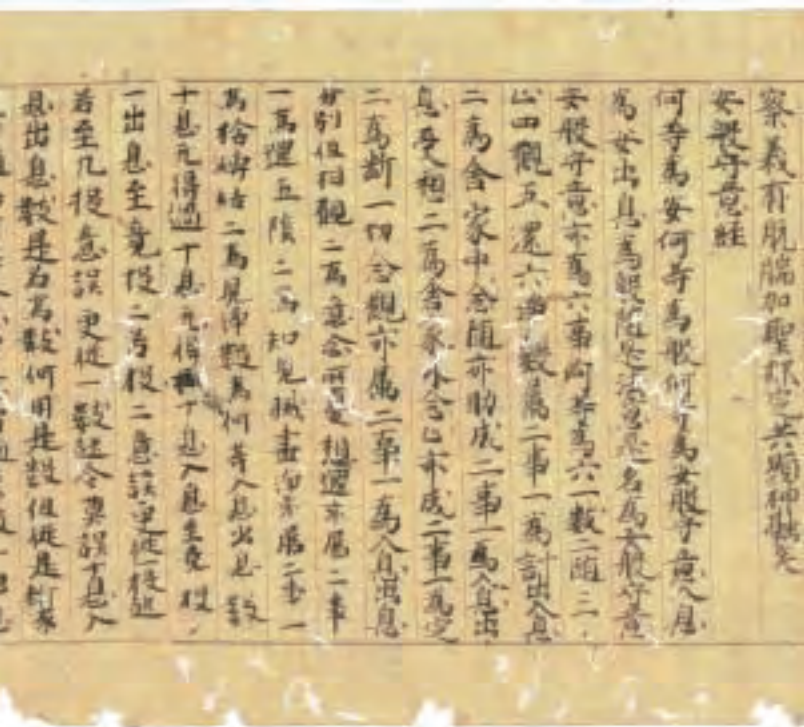 察義有肌腨加聖刪定共顯神融矣
安般守意經
何等為安何等為般何等為安般守意入息
為安出息為般隨是法意念名為安般守意
安般守意亦為六事何等為六一數二隨三
止四觀五還六淨數為二事一為計出入息
二為舍家中念隨亦助成二事一為入息出
息受相二為舍家外念止亦成二事一為定
二為斷一切念觀亦屬二事一為入息出息
分別但相觀二為意念所更想還亦屬二事
一為還五陰二為知見滅盡淨亦屬二事一
為捨縛結二為見淨數為何等入息出息數
十息无得過十息无得減十息入息至竟投
一出息至竟投二若投二意誤更從一投起
若至九投意誤更從一數起令莫誤十息入
息出息數是為為數何用是數但從是斷家